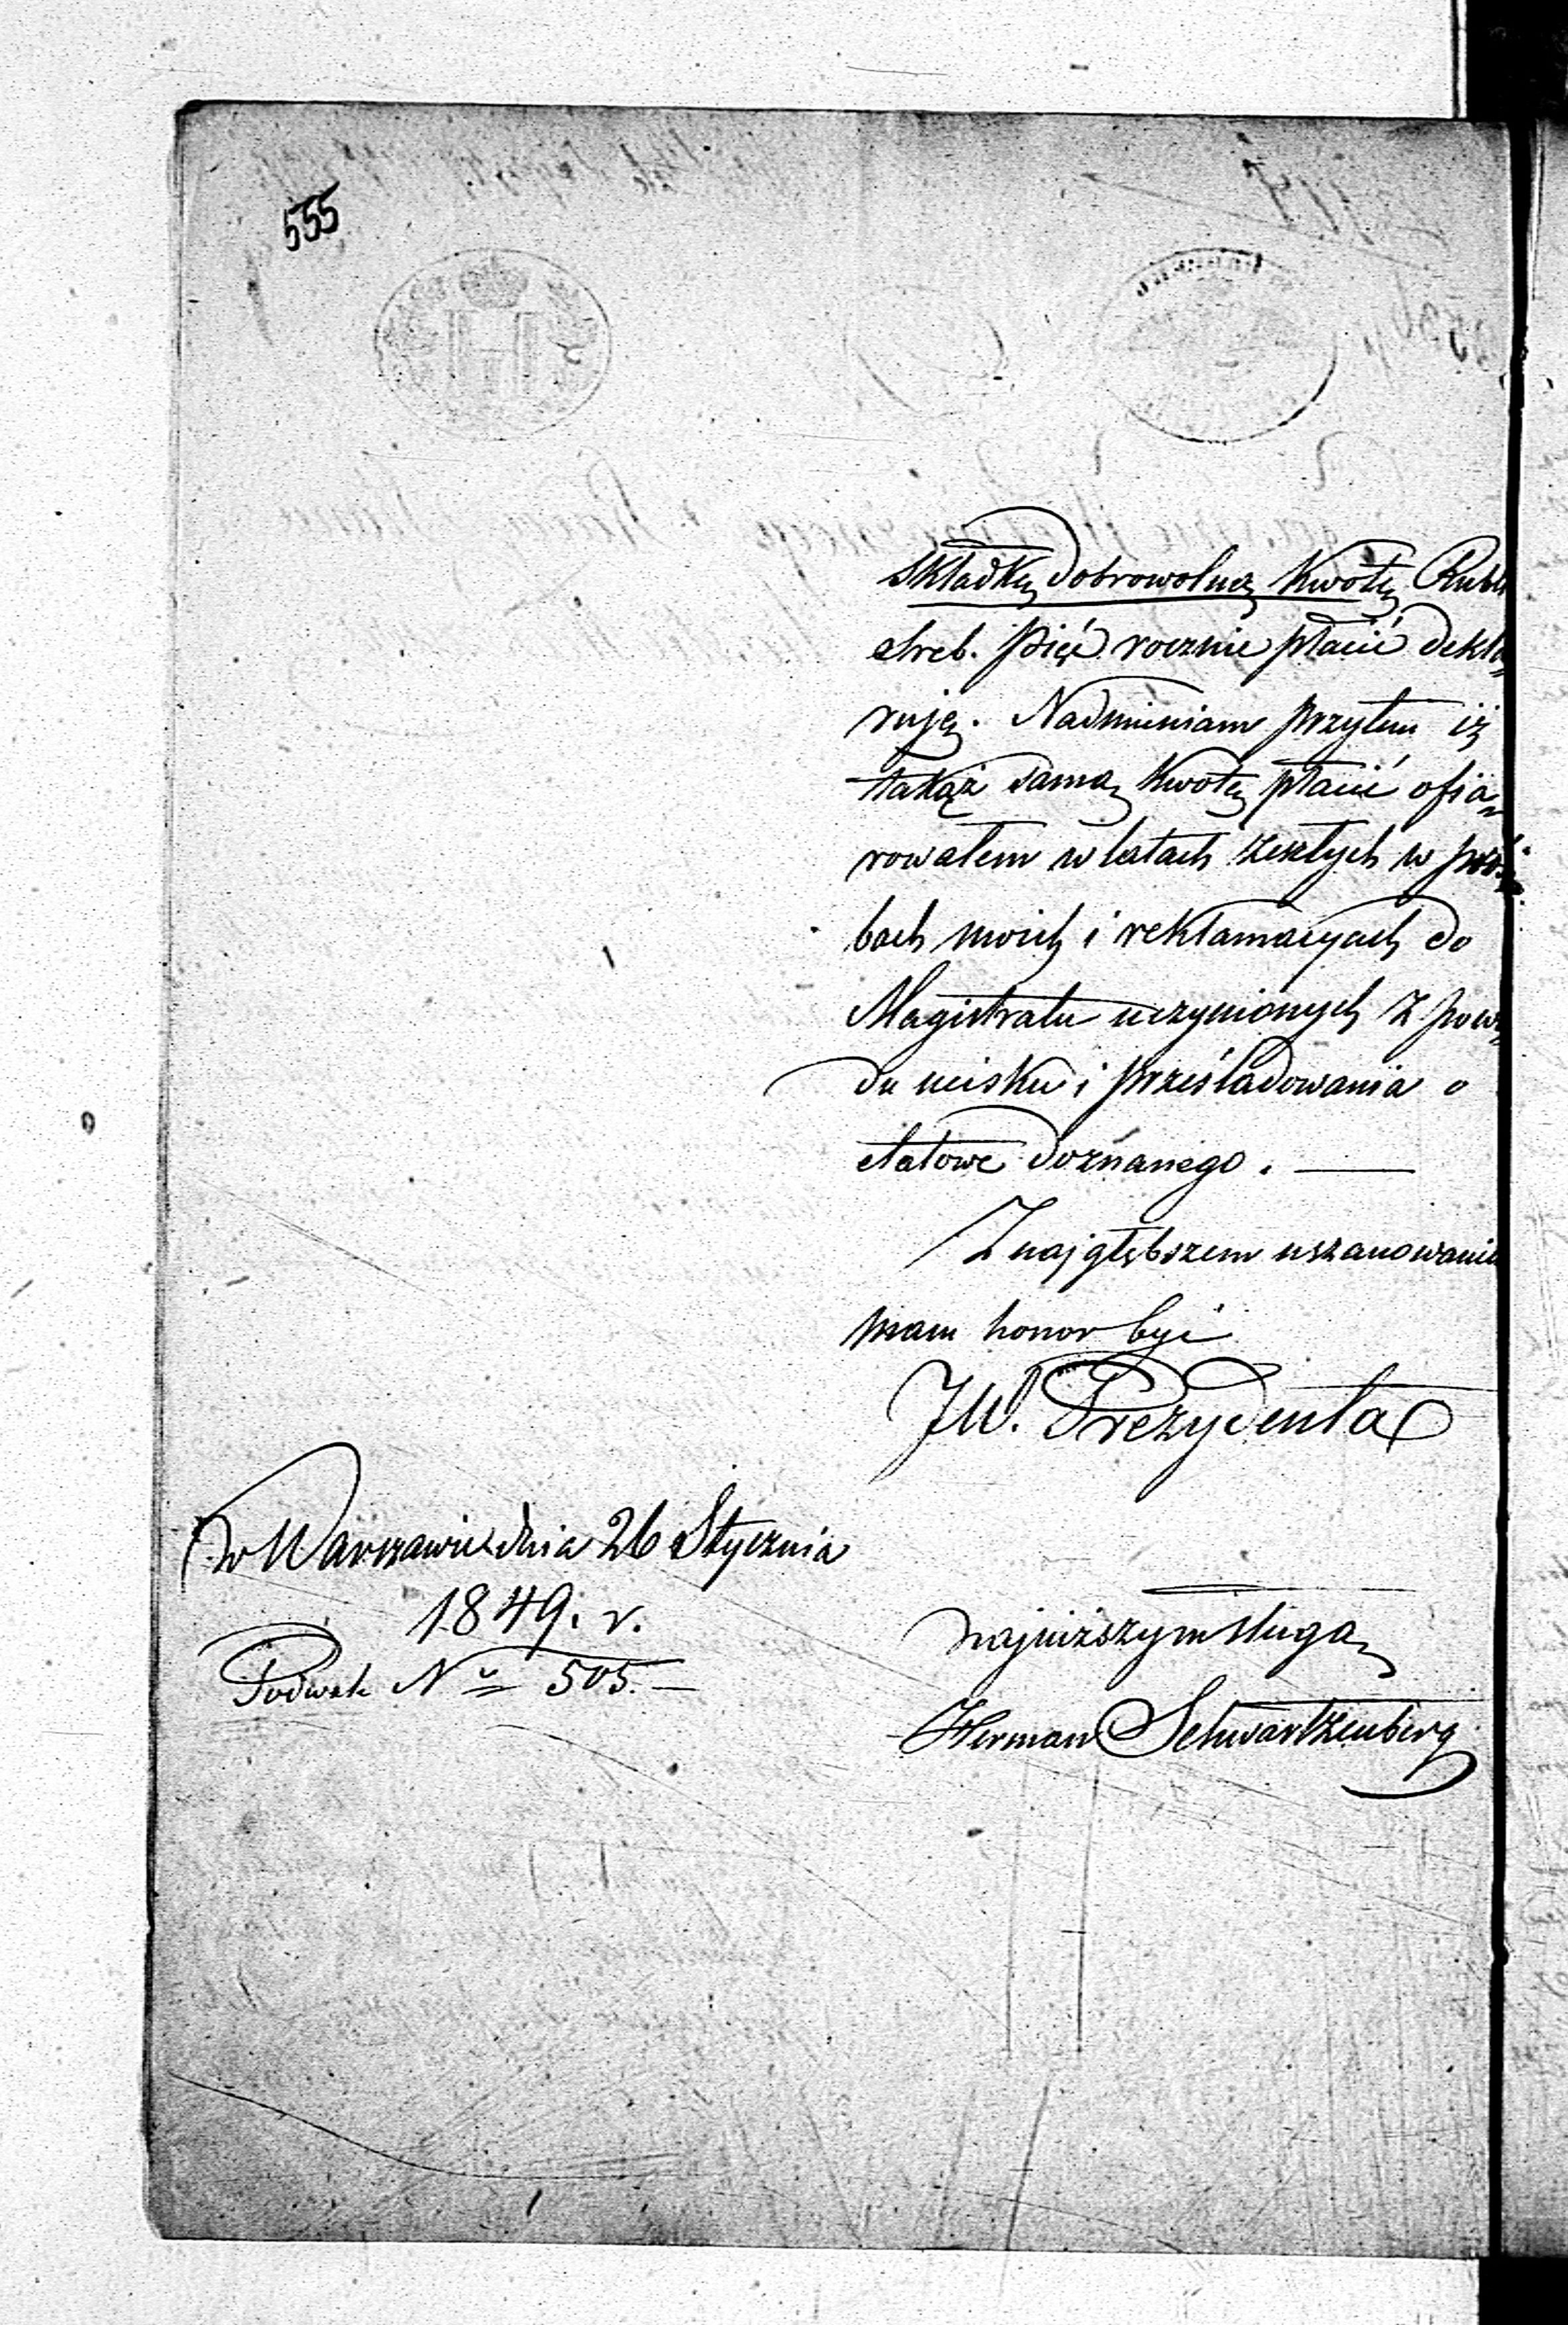 555
składkę dobrowolną kwotę Rubli
sreb. pięć rocznie płacić dekla=
ruję. Nadmieniam przytem iż
takąż samą kwotę płacić ofia=
rowałem w latach zeszłych w proś=
bach moich i reklamacyach do
Magistratu uczynionych z powo=
du ucisku i prześladowania o
etatowe doznanego. —
Z najgłębszem uszanowaniem
mam honor być
JW. Prezydenta
w Warszawie dnia 26 Stycznia
1849. r.
Podwale No 505. —
najniższym sługą
Herman Schwartzenberg